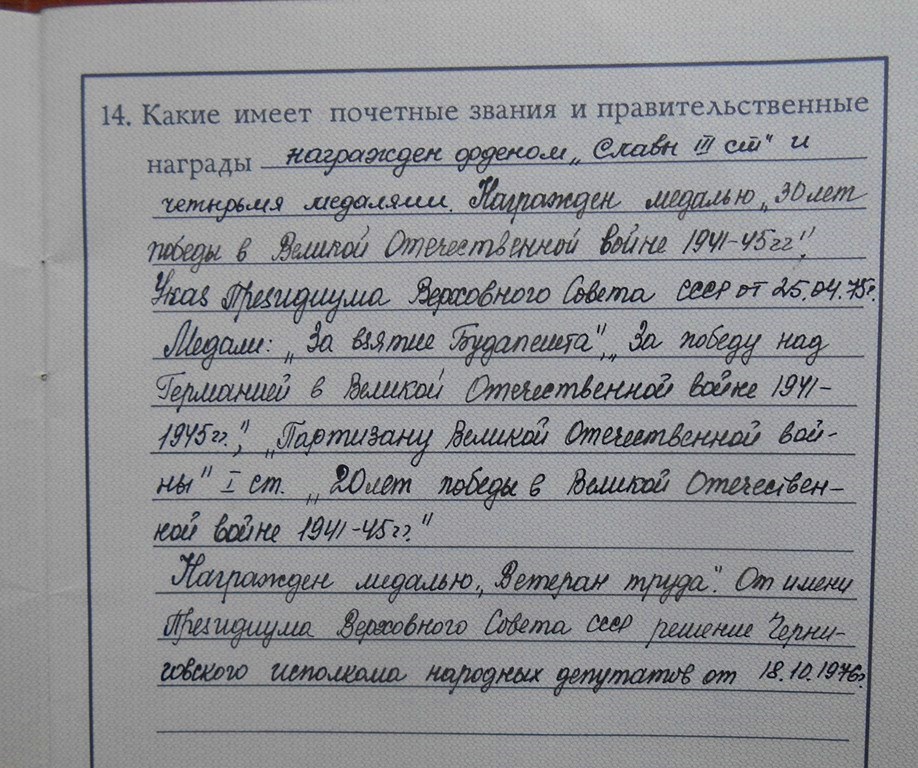 14. Какие имеет почетные звания и правительственные
награды награжден орденом „Славы III ст" и
четырьмя медалями. Награжден медалью „30 лет
победы в Великой Отечественной войне 1941-45гг",
Указ Президиума Верховного Совета СССР от 25.04.75г.
Медали: „За взятие Будапешта", „За победу над
Германией в Великой Отечественной войне 1941-
1945гг.", „Партизану Великой Отечественной вой-
ны" I ст. „20 лет победы в Великой Отечествен-
ной войне 1941-45гг."
Награжден медалью „Ветеран труда". От имени
Президиума Верховного Совета СССР решение Черни-
говского исполкома народных депутатов от 18.10.1976г.